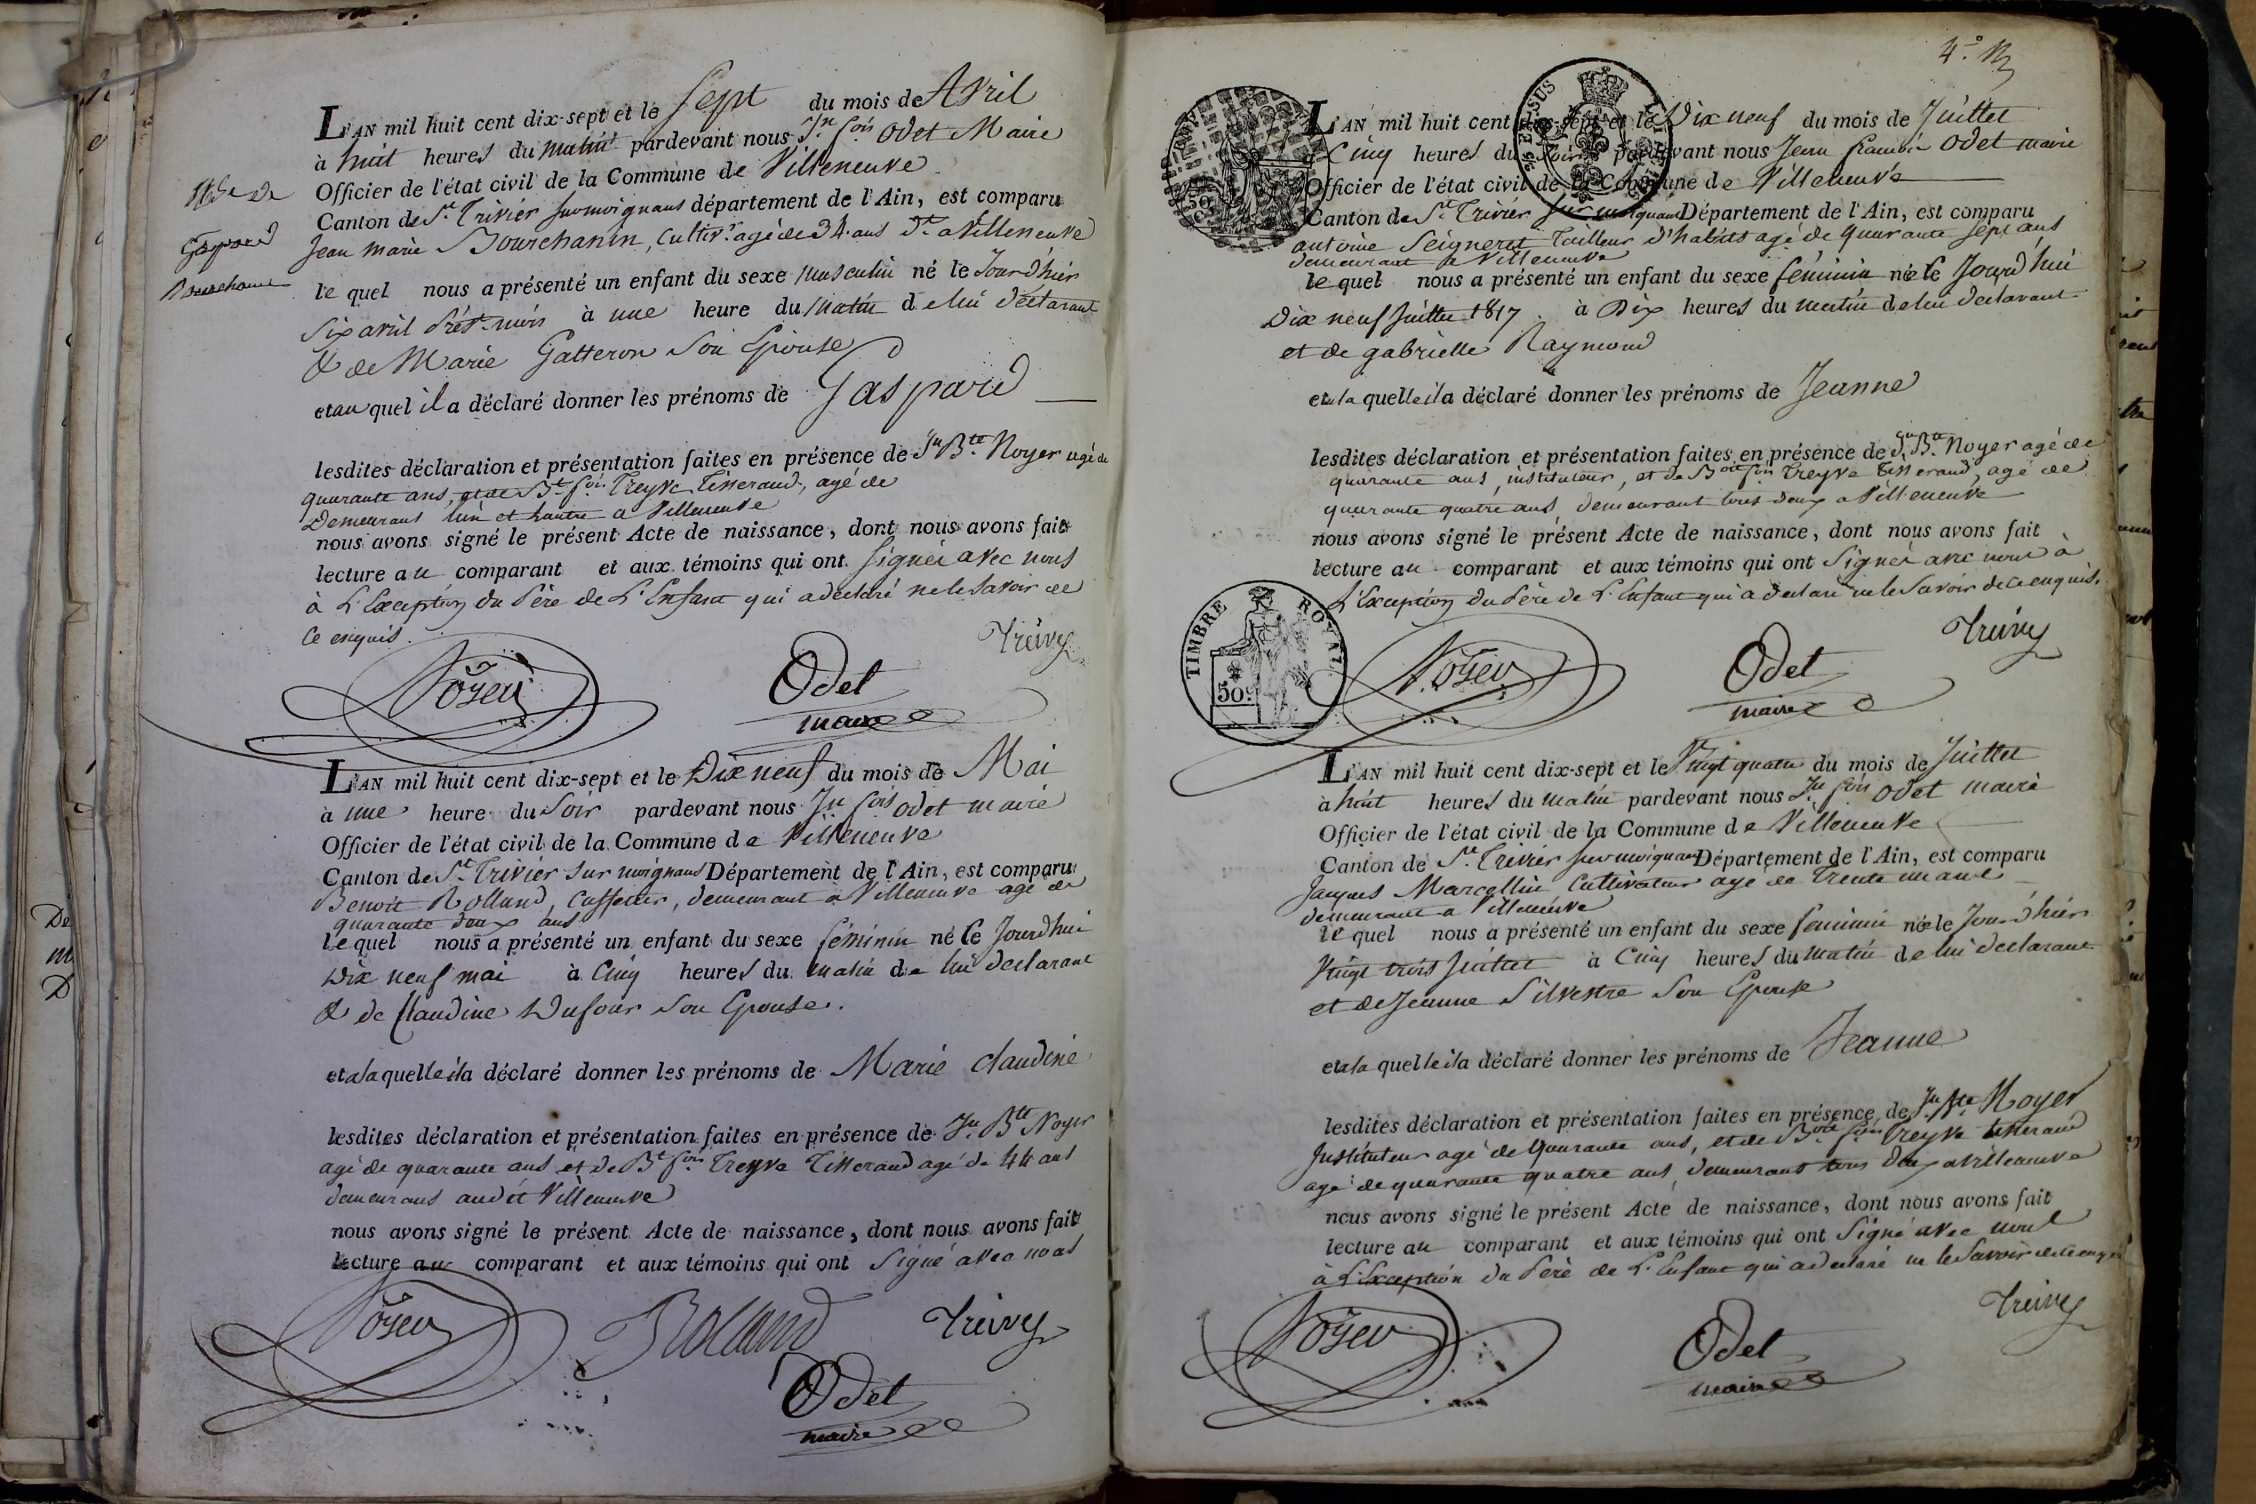 L'AN mil huit cent dix-sept et le Sept du mois de Avril
à huit heures du matin pardevant nous Jn fçois Odet Maire
Officier de l'état civil de la Commune de Villeneuve
Canton de St. Trivier sur moignans département de l'Ain, est comparu
Jean marie Bourchanin, Cultivr. agé de 34 ans dt. a Villeneuve
le quel nous a présenté un enfant du sexe masculin né le Jour d'hier
Six avril prést. mois à une heure du matin de lui déclarant
& de Marie Gatteron Son Epouse
et au quel il a déclaré donner les prénoms de Gaspard
lesdites déclaration et présentation faites en présence de Jn Bte. Noyer agé de
quarante ans, et de Bt. fçois Treyve Tisserand, agé de
Demeurans l'un et l'autre a Villeneuve
nous avons signé le présent Acte de naissance, dont nous avons fait
lecture au comparant et aux témoins qui ont signés avec nous
à L'Exception du Père de L'Enfant qui a déclaré ne le savoir de
Ce enquis.
Gaspard
Bourchanin
Treive
Noyer
Odet
maire
L'AN mil huit cent dix-sept et le Dix neuf du mois de Mai
à une heure du Soir pardevant nous Jn fçois odet maire
Officier de l'état civil de la Commune de Villeneuve
Canton de St. Trivier sur moignans Département de l'Ain, est comparu
Benoit Rolland, demeurant a Villeneuve agé de
quarante deux ans
le quel nous a présenté un enfant du sexe féminin né le Jourd'hui
Dix neuf mai à Cinq heures du matin de lui declarant
& de Claudine Dufour Son Epouse.
et a la quelle il a déclaré donner les prénoms de Marie Claudine
lesdites déclaration et présentation faites en présence de Jn. Bte Noyer
agé de quarante ans et de Bt. fçois Treyve Tisserand agé de 44 ans
demeurans audit Villeneuve
nous avons signé le présent Acte de naissance, dont nous avons fait
lecture au comparant et aux témoins qui ont signé avec nous
Noyer
Rolland
Treive
Odet
maire
4e
L'AN mil huit cent dix-sept et le Dix neuf du mois de Juillet
à Cinq heures du Soir pardevant nous Jean francois Odet maire
Officier de l'état civil de la Commune de Villeneuve
Canton de St. Trivier sur moignans Département de l'Ain, est comparu
antoine Seigneret Tailleur d'habits agé de quarante sept ans
demeurant a Villeneuve
le quel nous a présenté un enfant du sexe féminin née le Jourd'hui
Dix neuf Juillet 1817. à Dix heures du matin de lui declarant
et de gabrielle Raymond
et a la quelle il a déclaré donner les prénoms de Jeanne
lesdites déclaration et présentation faites en présence de Jn. Bte. Noyer agé de
quarante ans, instituteur, et de Boit fçois Treyve Tisserand, agé de
quarante quatre ans, demeurant tous deux a Villeneuve
nous avons signé le présent Acte de naissance, dont nous avons fait
lecture au comparant et aux témoins qui ont Signés avec nous à
L'Exception du Père de L'Enfant qui a declaré ne le Savoir de ce enquis.
TIMBRE ROYAL
50c
Treive
Noyer
Odet
maire
L'AN mil huit cent dix-sept et le Vingt quatre du mois de Juillet
à huit heures du matin pardevant nous Jn fçois Odet maire
Officier de l'état civil de la Commune de Villeneuve
Canton de St. Trivier sur moignans Département de l'Ain, est comparu
Jacques Marcellin Cultivateur agé de Trente
demeurant a Villeneuve
le quel nous a présenté un enfant du sexe feminin née le Jour d'hier
Vingt trois Juillet à Cinq heures du matin de lui declarant
et de Jeanne Silvestre Son Epouse
et a la quelle il a déclaré donner les prénoms de Jeanne
lesdites déclaration et présentation faites en présence de Jn. Bte Noyer
Instituteur agé de Quarante ans, et de Boit fçois Treyve tisserand
agé de quarante quatre ans, demeurant tous deux a Villeneuve
nous avons signé le présent Acte de naissance, dont nous avons fait
lecture au comparant et aux témoins qui ont Signé avec nous
à L'Exception du Père de L'Enfant qui a declaré ne le Savoir de ce enquis
Treive
Noyer
Odet
maire